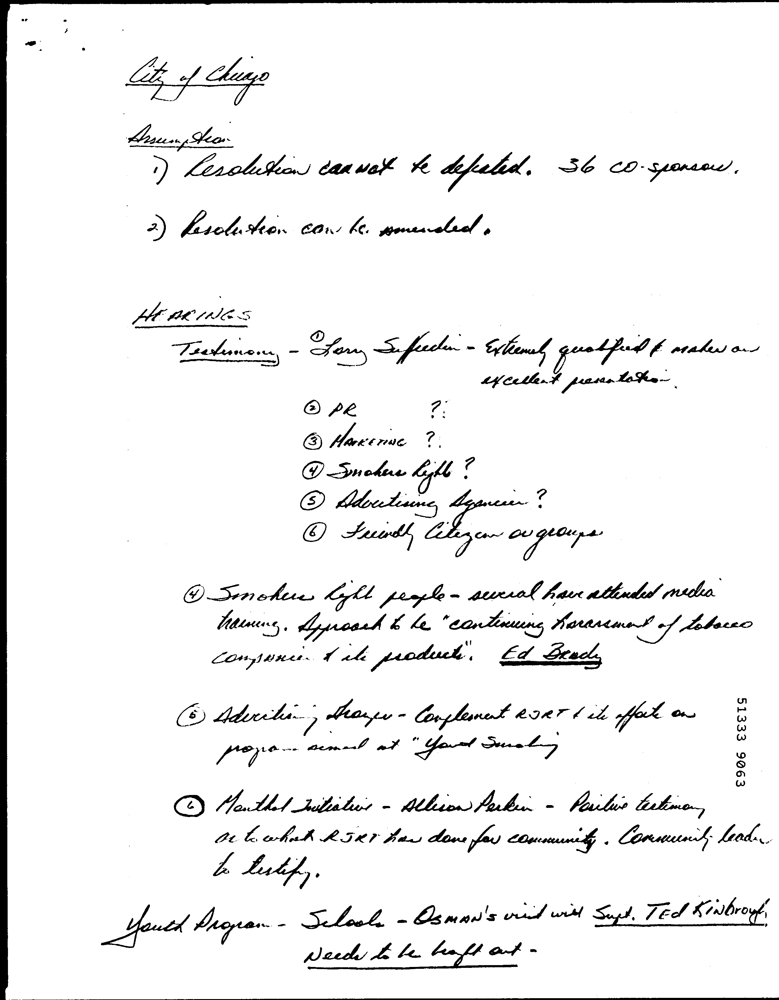 City of Chicago
Assumption
1) Resolution cannot be defeated. 36 co-sponsors.
2) Resolution can be amended.
HEARINGS
Testimony - ① Larry Suffredin - Extremely qualified & makes an
excellent presentation.
② PR ?
③ MARKETING ?
④ Smokers Right ?
⑤ Advertising Agencies ?
⑥ Friendly Citizen or groups
④ Smokers Right people - several have attended media
training. Approach to be "continuing harassment of tobacco
companies & its products". Ed Brady
⑤ Advertising - Complement RJRT & its efforts on
program aimed at "Youth Smoking
⑥ Menthol Initiative - Allison Parkin - Positive testimony
as to what RJRT has done for community. Community leader
to testify.
Youth Program - Schools - OSMAN'S visit with Supt. TEd Kinbrough
Needs to be brought out -
51333 9063